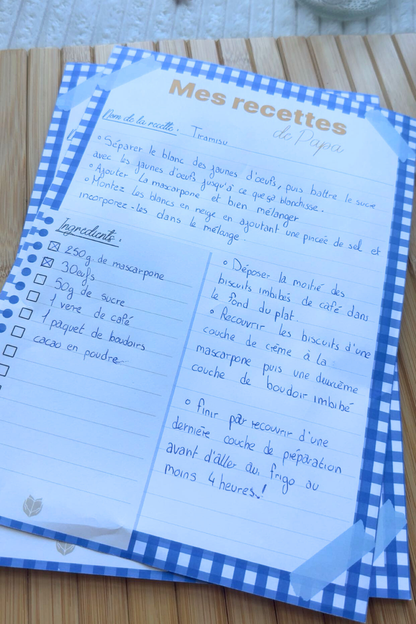 Mes recettes
de Papa
Nom de la recette : Tiramisu
• Séparer le blanc des jaunes d'œufs, puis battre le sucre
avec les jaunes d'œufs jusqu'à ce que ça blanchisse.
• Ajouter la mascarpone et bien mélanger
• Montez les blancs en neige en ajoutant une pincée de sel et
incorporez-les dans le mélange
Ingrédients :
250g de mascarpone
3 Oeufs
50g de sucre
1 verre de café
1 paquet de boudoirs
cacao en poudre
• Déposer la moitié des
biscuits imbibés de café dans
le fond du plat.
• Recouvrir les biscuits d'une
couche de crème à la
mascarpone puis une deuxième
couche de boudoir imbibé
• Finir par recouvrir d'une
dernière couche de préparation
avant d'aller au frigo au
moins 4 heures !